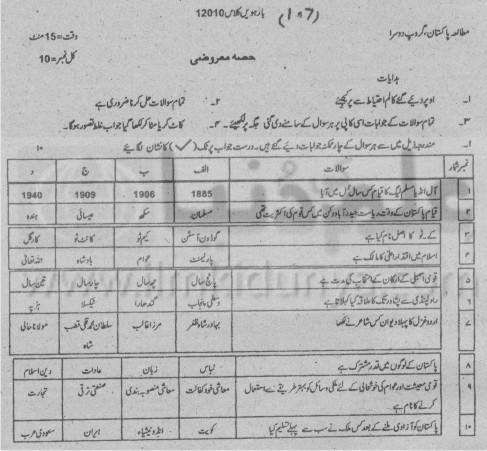 (1م7)
بارہویں کلاس 12010
مطالعہ پاکستان، گروپ دوسرا
وقت=15 منٹ
حصہ معروضی
کل نمبر=10
ہدایات
۱۔ اوپر دیئے گئے کالم احتیاط سے پر کیجئے ۲۔ تمام سوالات حل کرنا ضروری ہے
۳۔ تمام سوالات کے جوابات اسی کاپی پر ہر سوال کے سامنے دی گئی جگہ پر لکھیئے۔ ۴۔ کاٹ کر یا مٹا کر لکھا گیا جواب غلط تصور ہوگا۔
۱۔ مندرجہ ذیل میں سے ہر سوال کے چار ممکنہ جوابات دیئے گئے ہیں۔ درست جواب پر ٹک (✓) کا نشان لگایئے ۱۰
نمبر شمار سوالات الف ب ج د
۱ آل انڈیا مسلم لیگ کا قیام کس سال عمل میں آیا 1885 1906 1909 1940
۲ قیام پاکستان کے وقت ریاست حیدر آباد دکن میں کس قوم کی اکثریت تھی مسلمان سکھ عیسائی ہندو
۳ کے۔ٹو کا اصل نام کیا ہے گوڈون آسٹن کیم ٹو کانٹ ٹو کارگل
۴ اسلام میں اقتدار اعلیٰ کا مالک ہے پارلیمنٹ عوام بادشاہ اللہ تعالی
۵ قومی اسمبلی کے ارکان کے انتخاب کی مدت ہے پانچ سال چھ سال چار سال تین سال
۶ راولپنڈی سے پشاور تک کا علاقہ کیا کہلاتا ہے وسطی پنجاب گندھارا ٹیکسلا ہڑپہ
۷ اردو غزل کا پہلا دیوان کس شاعر نے لکھا بہادر شاہ ظفر مرزا غالب سلطان محمد قلی قطب شاہ مولانا حالی
۸ پاکستان کے لوگوں میں قدر مشترک ہے لباس زبان عادات دین اسلام
۹ قومی معیشت اور عوام کی خوشحالی کے لئے ملکی وسائل کو بہتر طریقے سے استعمال کرنے کا نام ہے معاشی خود کفالت معاشی منصوبہ بندی صنعتی ترقی تجارت
۱۰ پاکستان کو آزادی ملنے کے بعد کس ملک نے سب سے پہلے تسلیم کیا کویت انڈونیشیاء ایران سعودی عرب